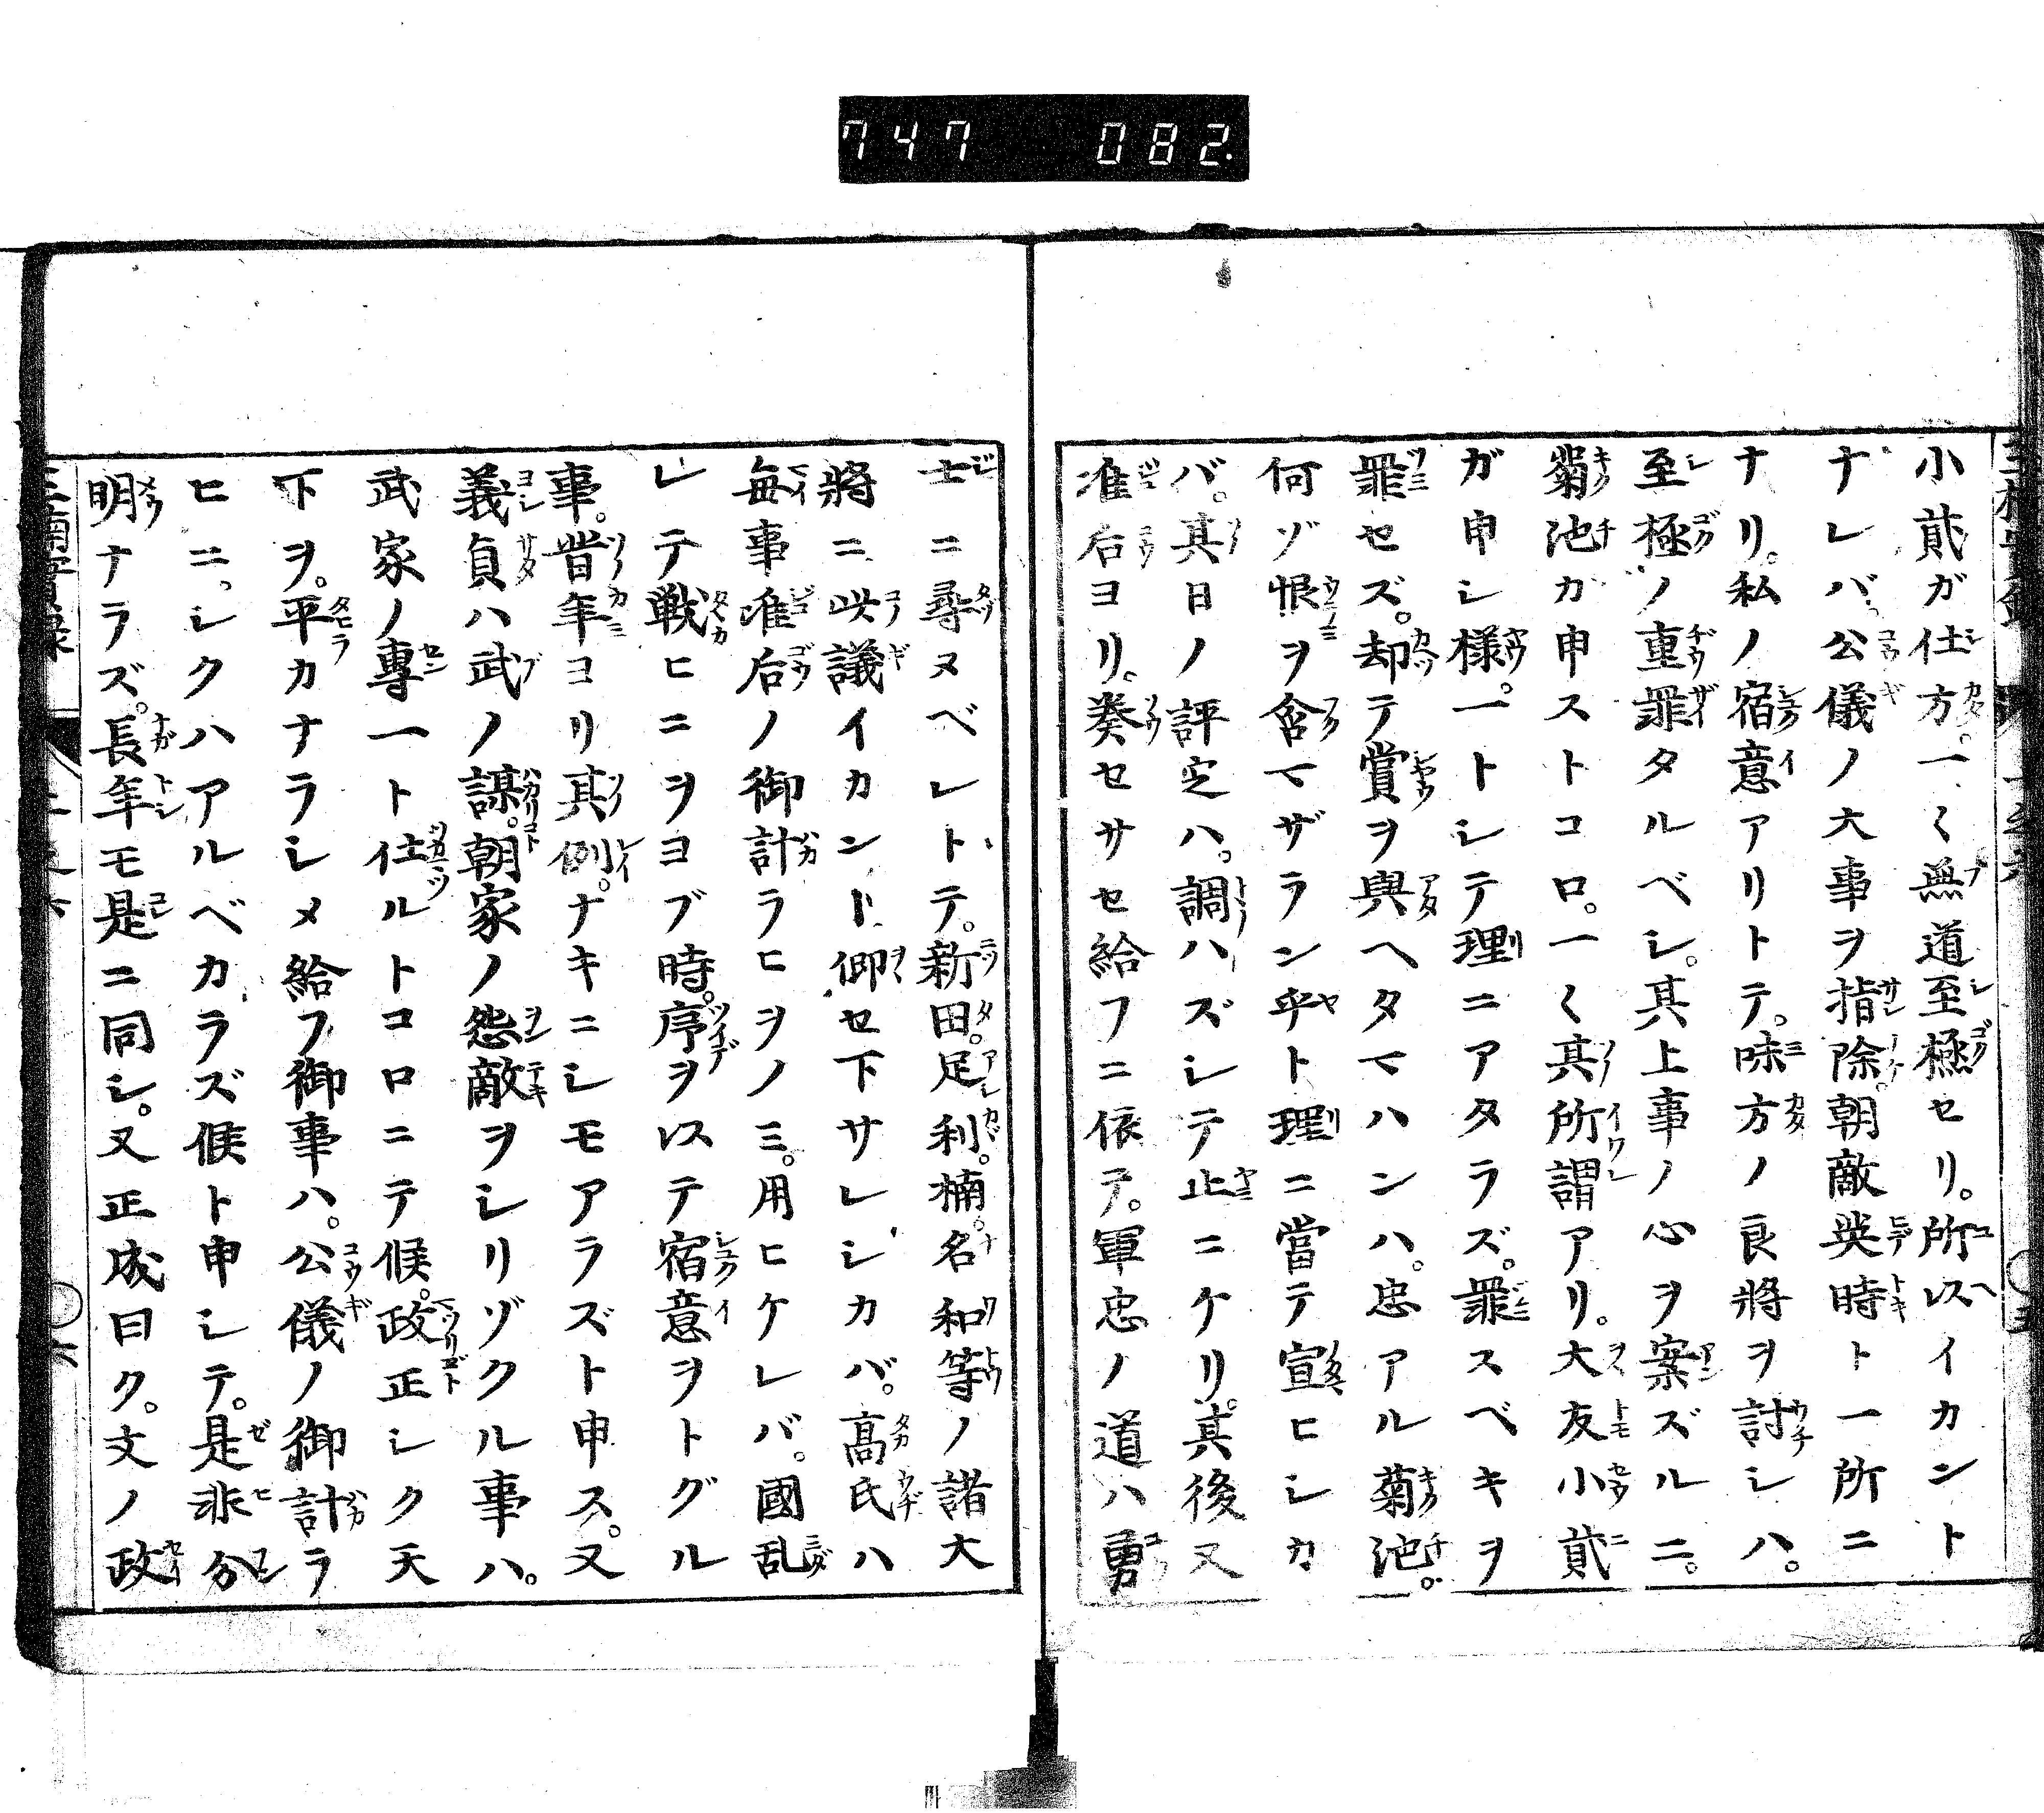 747 082
小貮ガ仕方。一〱無道至極セリ。所以イカント
ナレバ。公儀ノ大事ヲ指除。朝敵英時ト一所ニ
ナリ。私ノ宿意アリトテ。味方ノ良將ヲ討シハ。
至極ノ重罪タルベシ。其上事ノ心ヲ案ズルニ。
菊池ガ申ストコロ。一〱其所謂アリ。大友小貮
ガ申シ様。一トシテ理ニアタラズ。罪スベキヲ
罪セズ。却テ賞ヲ與ヘタマハンハ。忠アル菊池。
何ゾ恨ヲ含マザラン乎ト理ニ當テ宣ヒシカ
バ。其日ノ評定ハ。調ハズシテ止ニケリ。其後又
准后ヨリ。奏セサセ給フニ依テ。軍忠ノ道ハ勇
士ニ尋ヌベシトテ。新田。足利。楠。名和等ノ諸大
將ニ此議イカント仰セ下サレシカバ。高氏ハ
毎事准后ノ御計ラヒヲノミ。用ヒケレバ。國乱
レテ戦ヒニヲヨブ時。序ヲ以テ宿意ヲトグル
事。昔年ヨリ其例。ナキニシモアラズト申ス。又
義貞ハ武ノ謀。朝家ノ怨敵ヲシリゾクル事ハ。
武家ノ專一ト仕ルトコロニテ候。政正シク天
下ヲ。平カナラシメ給フ御事ハ。公儀ノ御計ラ
ヒニ。シクハアルベカラズ候ト申シテ。是非分
明ナラズ。長年モ是ニ同シ。又正成曰ク。文ノ政